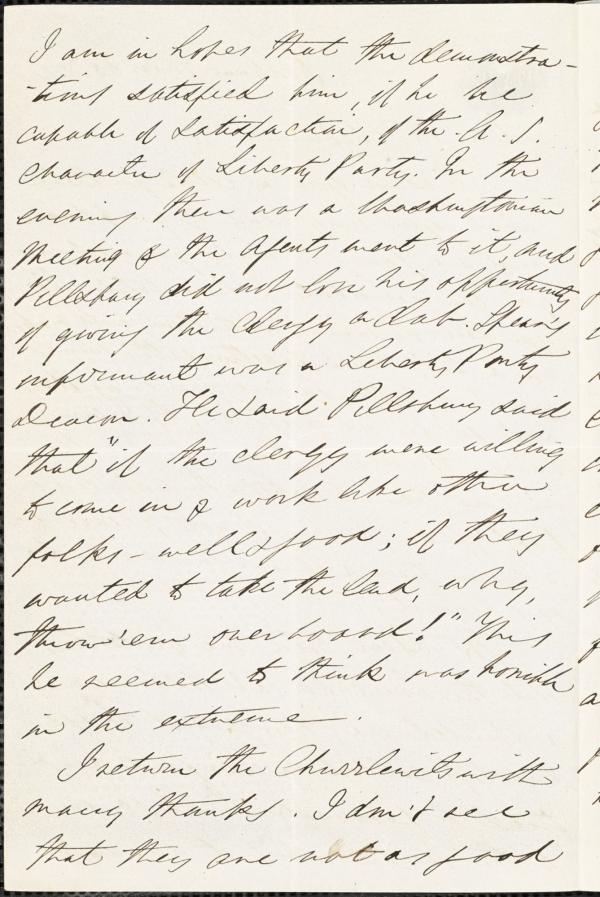 I am in hopes that the demonstra-
-tions satisfied him, if he be
capable of satisfaction, of the A. S.
character of Liberty Party. In the
evening there was a Washingtonian
Meeting & the Agents went to it, and
Pillsbury did not lose his opportunity
of giving the clergy a dab. Spear's
informant was a Liberty Party
Deacon. He said Pillsbury said
that "if the clergy were willing
to come in & work like other
folks - well & good; if they
wanted to take the lead, why,
throw 'em overboard!" This
he seemed to think was horrible
in the extreme.
I return the Chuzzlewits with
many thanks. I don't see
that they are not as good